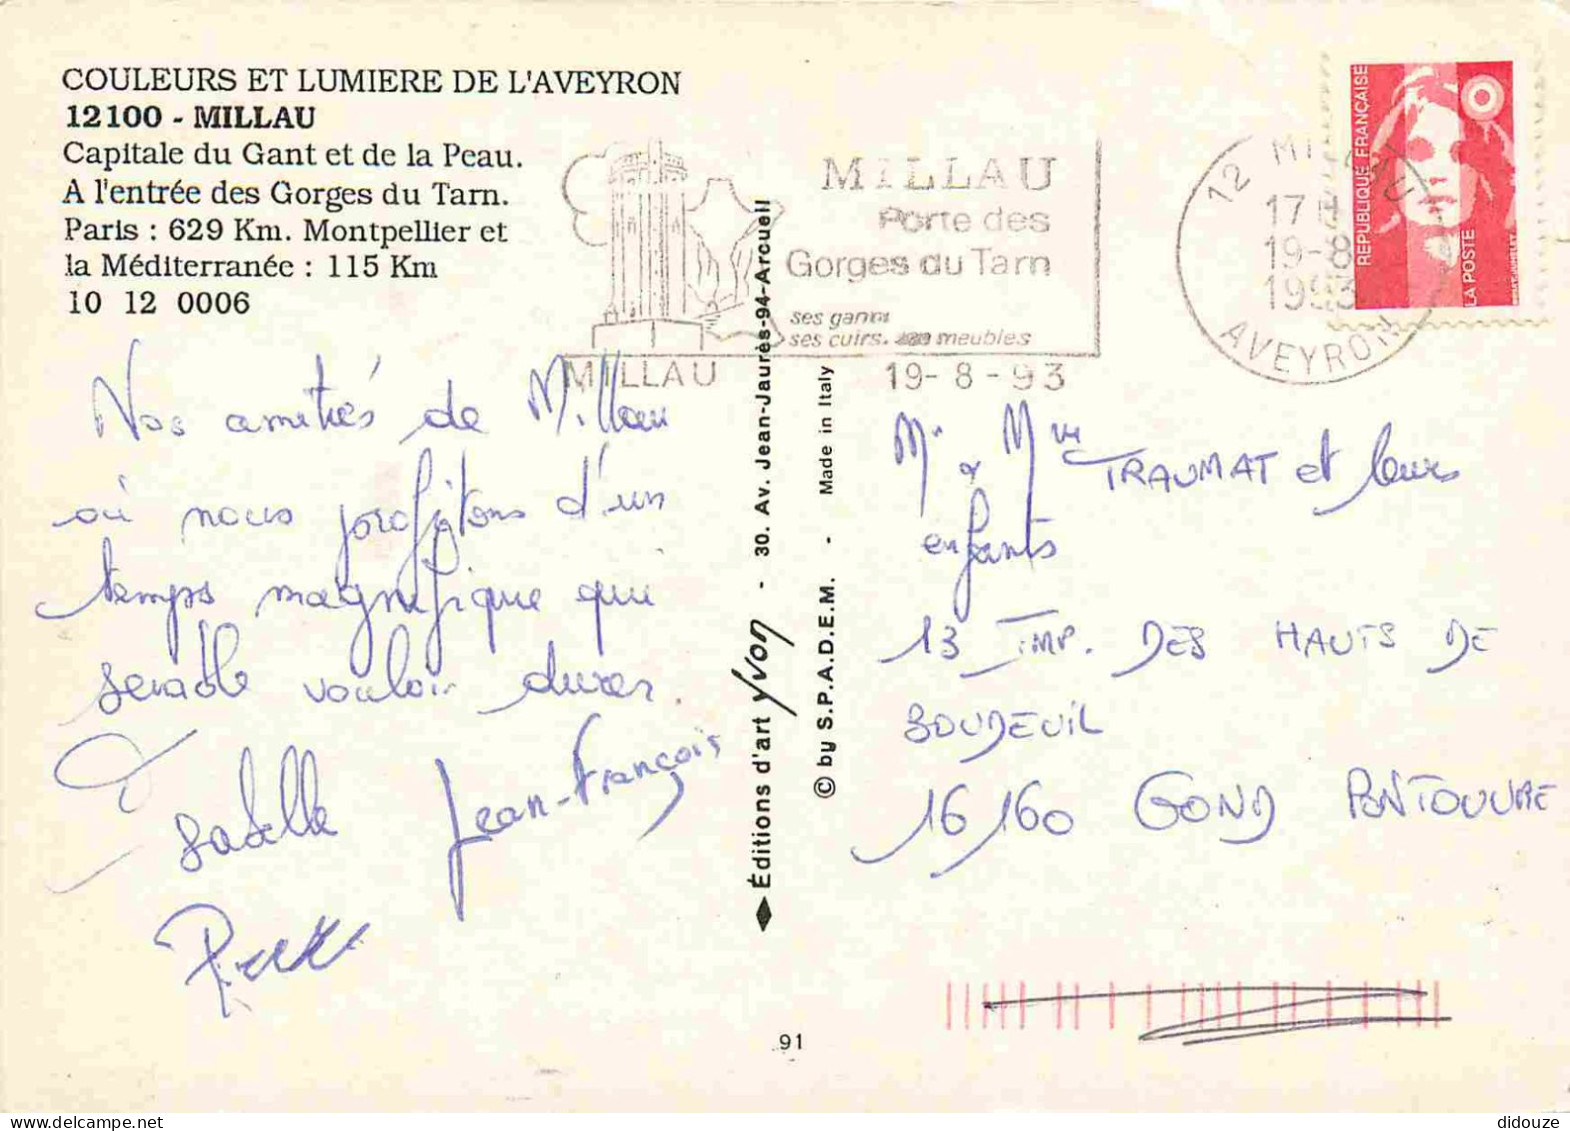 COULEURS ET LUMIERE DE L'AVEYRON
12100 - MILLAU
Capitale du Gant et de la Peau.
A l'entrée des Gorges du Tarn.
Paris : 629 Km. Montpellier et
la Méditerranée : 115 Km
10 12 0006
MILLAU
Porte des
Gorges du Tarn
ses gants
ses cuirs. ses meubles
MILLAU
19-8-93
12 MILLAU
17H
19-8
1993
AVEYRON
REPUBLIQUE FRANÇAISE
LA POSTE
Nos amitiés de Millau
où nous profitons d'un
temps magnifique qui
semble vouloir durer.
Isabelle
Jean-François
Éditions d'art Yvon - 30. Av. Jean-Jaurès-94-Arcueil
© by S.P.A.D.E.M. - Made in Italy
Mr & Mme TRAUMAT et leurs
enfants
13 IMP. DES HAUTS DE
BOUDEUIL
16160 GOND PONTOUVRE
91
didouze